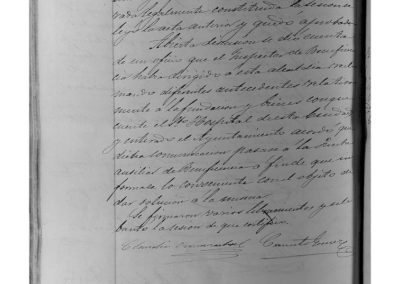 rada legalmente constituida la sesion se
leyó la acta anterior y quedó aprobada
Abierta discusion se dio cuenta
de un oficio que el Inspector de Benefi
cia ha dirigido á esta alcaldia recla
mando diferentes antecedentes relativa
mente á la fundacion y bienes con que
cuente el Hospital de esta ciudad
y enterado el Ayuntamiento acordó que
dicha comunicacion pasase á la Junta
auxiliar de Beneficencia á fin de que in
forme lo conveniente con el objeto de
dar solucion á la misma.
Se firmaron varios libramientos y se le
bantó la sesion de que certifico
Vicente Gomez